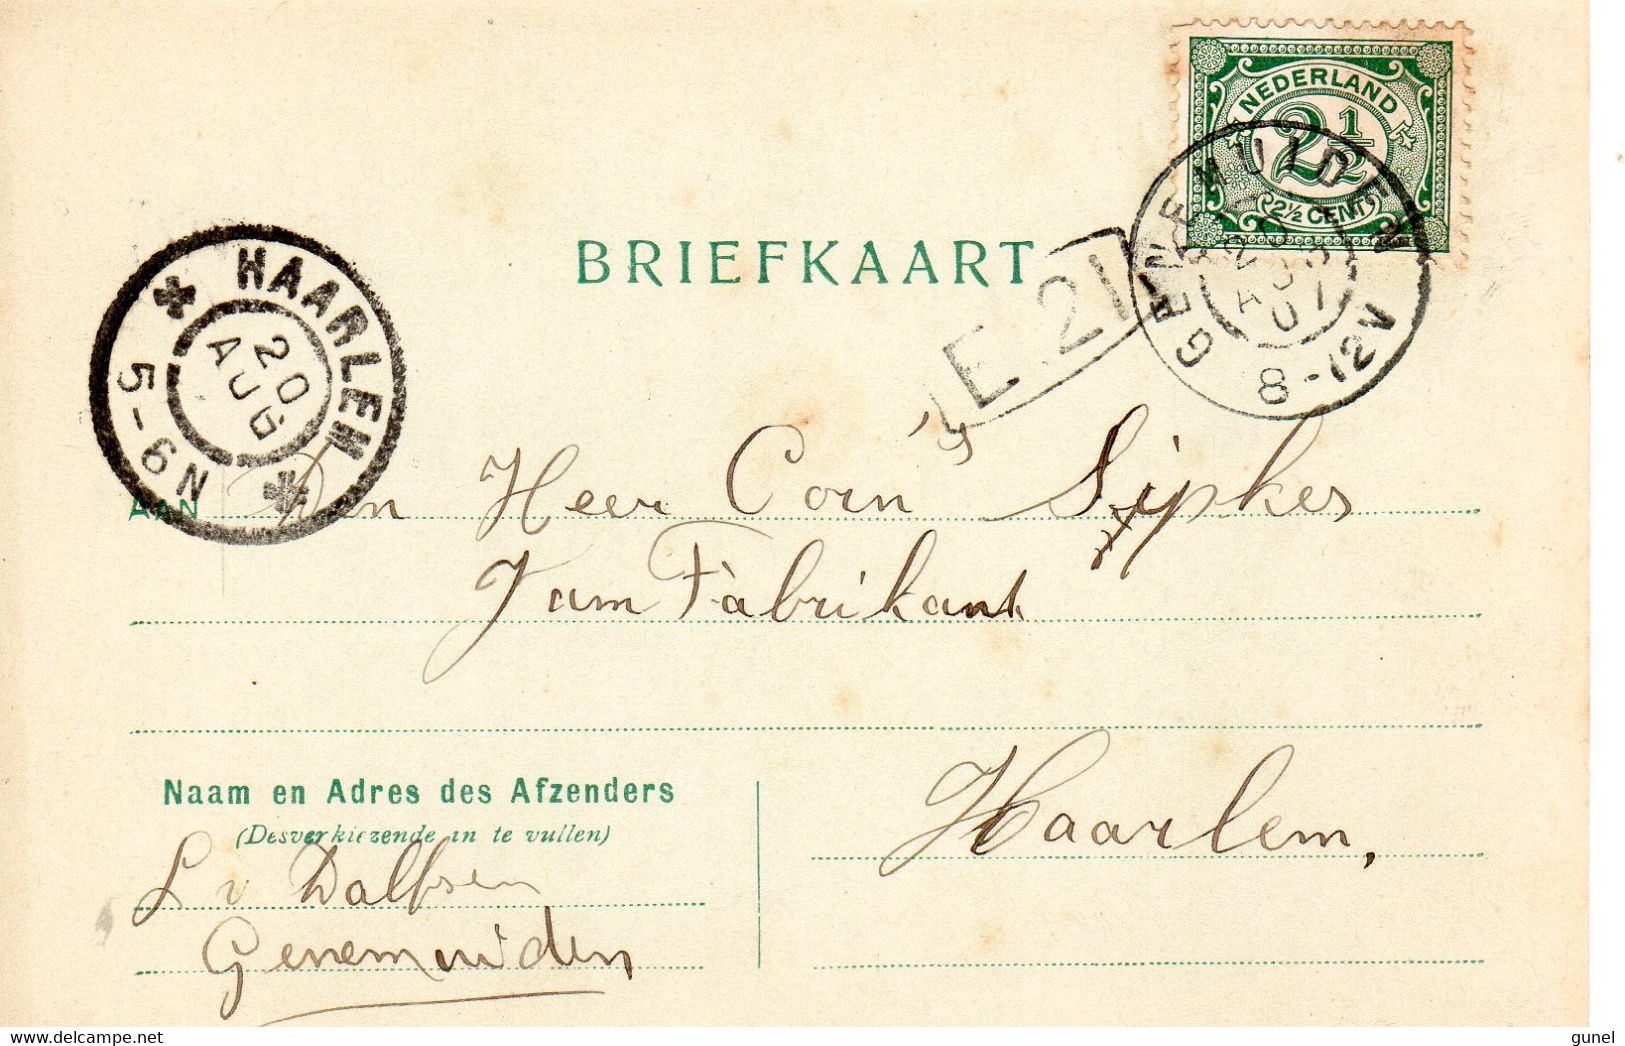 NEDERLAND
2½
2½ CENT
GENEMUIDEN
20 AUG 07
8-12V
BRIEFKAART
E 21
HAARLEM
20 AUG
5-6N
AAN Den Heer Corn's Sipkes
Jam Fàbrikant
Haarlem,
Naam en Adres des Afzenders
(Desverkiezende in te vullen)
L v Dalfsen
Genemuiden
gunel